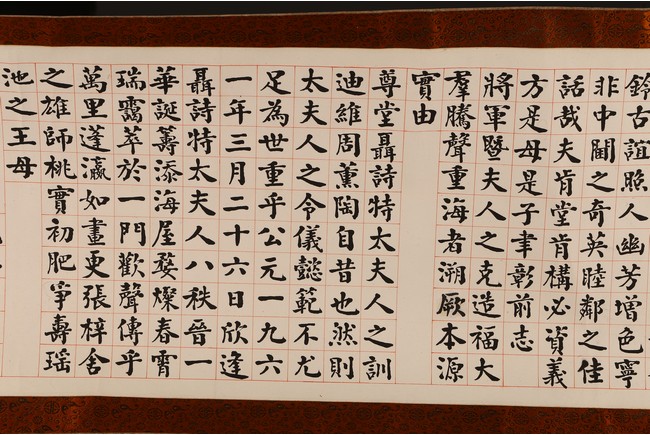 古誼照人幽芳增色寧
非中閫之奇英睦鄰之佳
話哉夫肯堂肯構必資義
方是母是子聿彰前志
將軍暨夫人之克造福大
羣騰聲重海者溯厥本源
實由
尊堂聶詩特太夫人之訓
迪維周薰陶自昔也然則
太夫人之令儀懿範不尤
足為世重乎公元一九六
一年三月二十六日欣逢
聶詩特太夫人八秩晉一
華誕籌添海屋婺燦春霄
瑞靄萃於一門歡聲傳乎
萬里蓬瀛如畫更張梓舍
之雄師桃實初肥爭壽瑤
池之王母